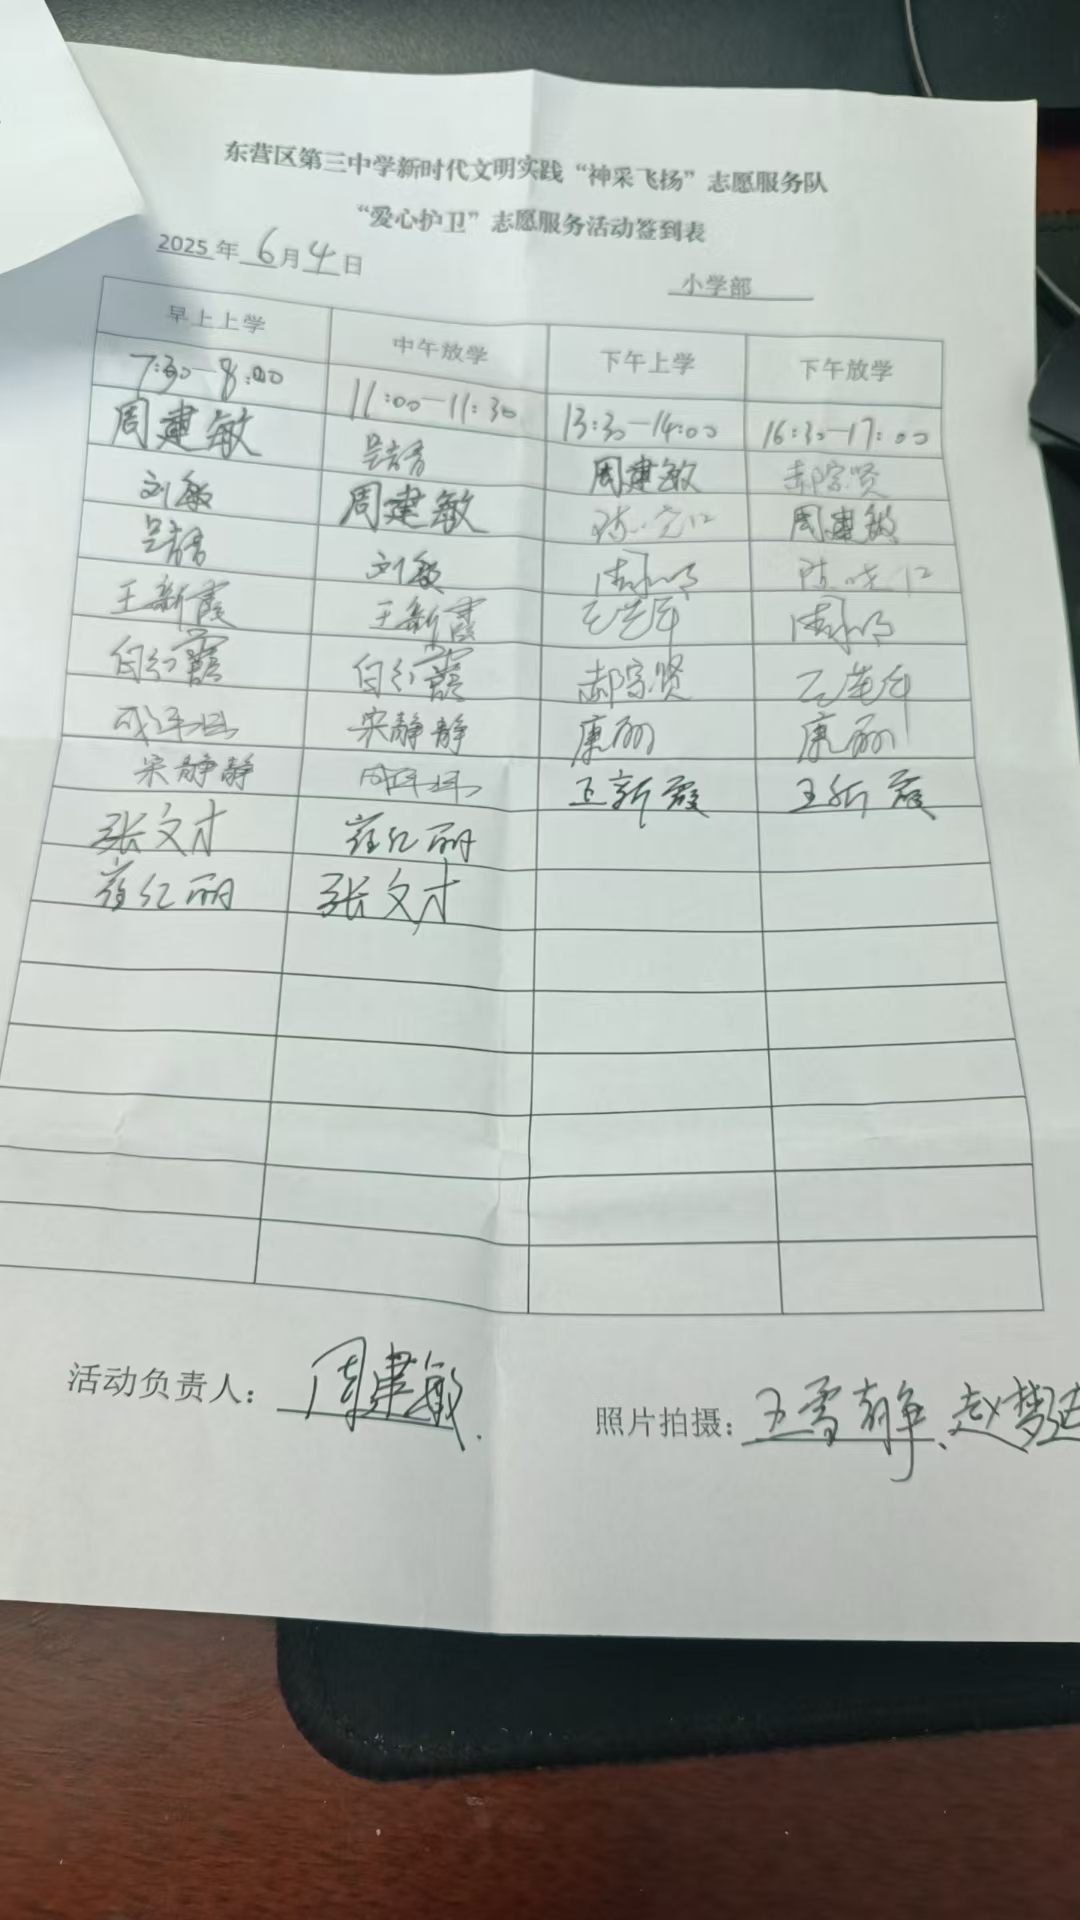 东营区第三中学新时代文明实践“神采飞扬”志愿服务队
“爱心护卫”志愿服务活动签到表
2025年6月4日
小学部
早上上学 中午放学 下午上学 下午放学
7:30—8:00 11:00—11:30 13:30—14:00 16:30—17:00
周建敏 周建敏 郝宗贤
刘敏 周建敏 周建敏
刘敏
王新霞 王新霞
白红霞 白红霞 郝宗贤
宋静静 康丽 康丽
宋静静 王新霞 王新霞
张文才 红丽
红丽 张文才
活动负责人：周建敏
照片拍摄：王雪静、赵梦